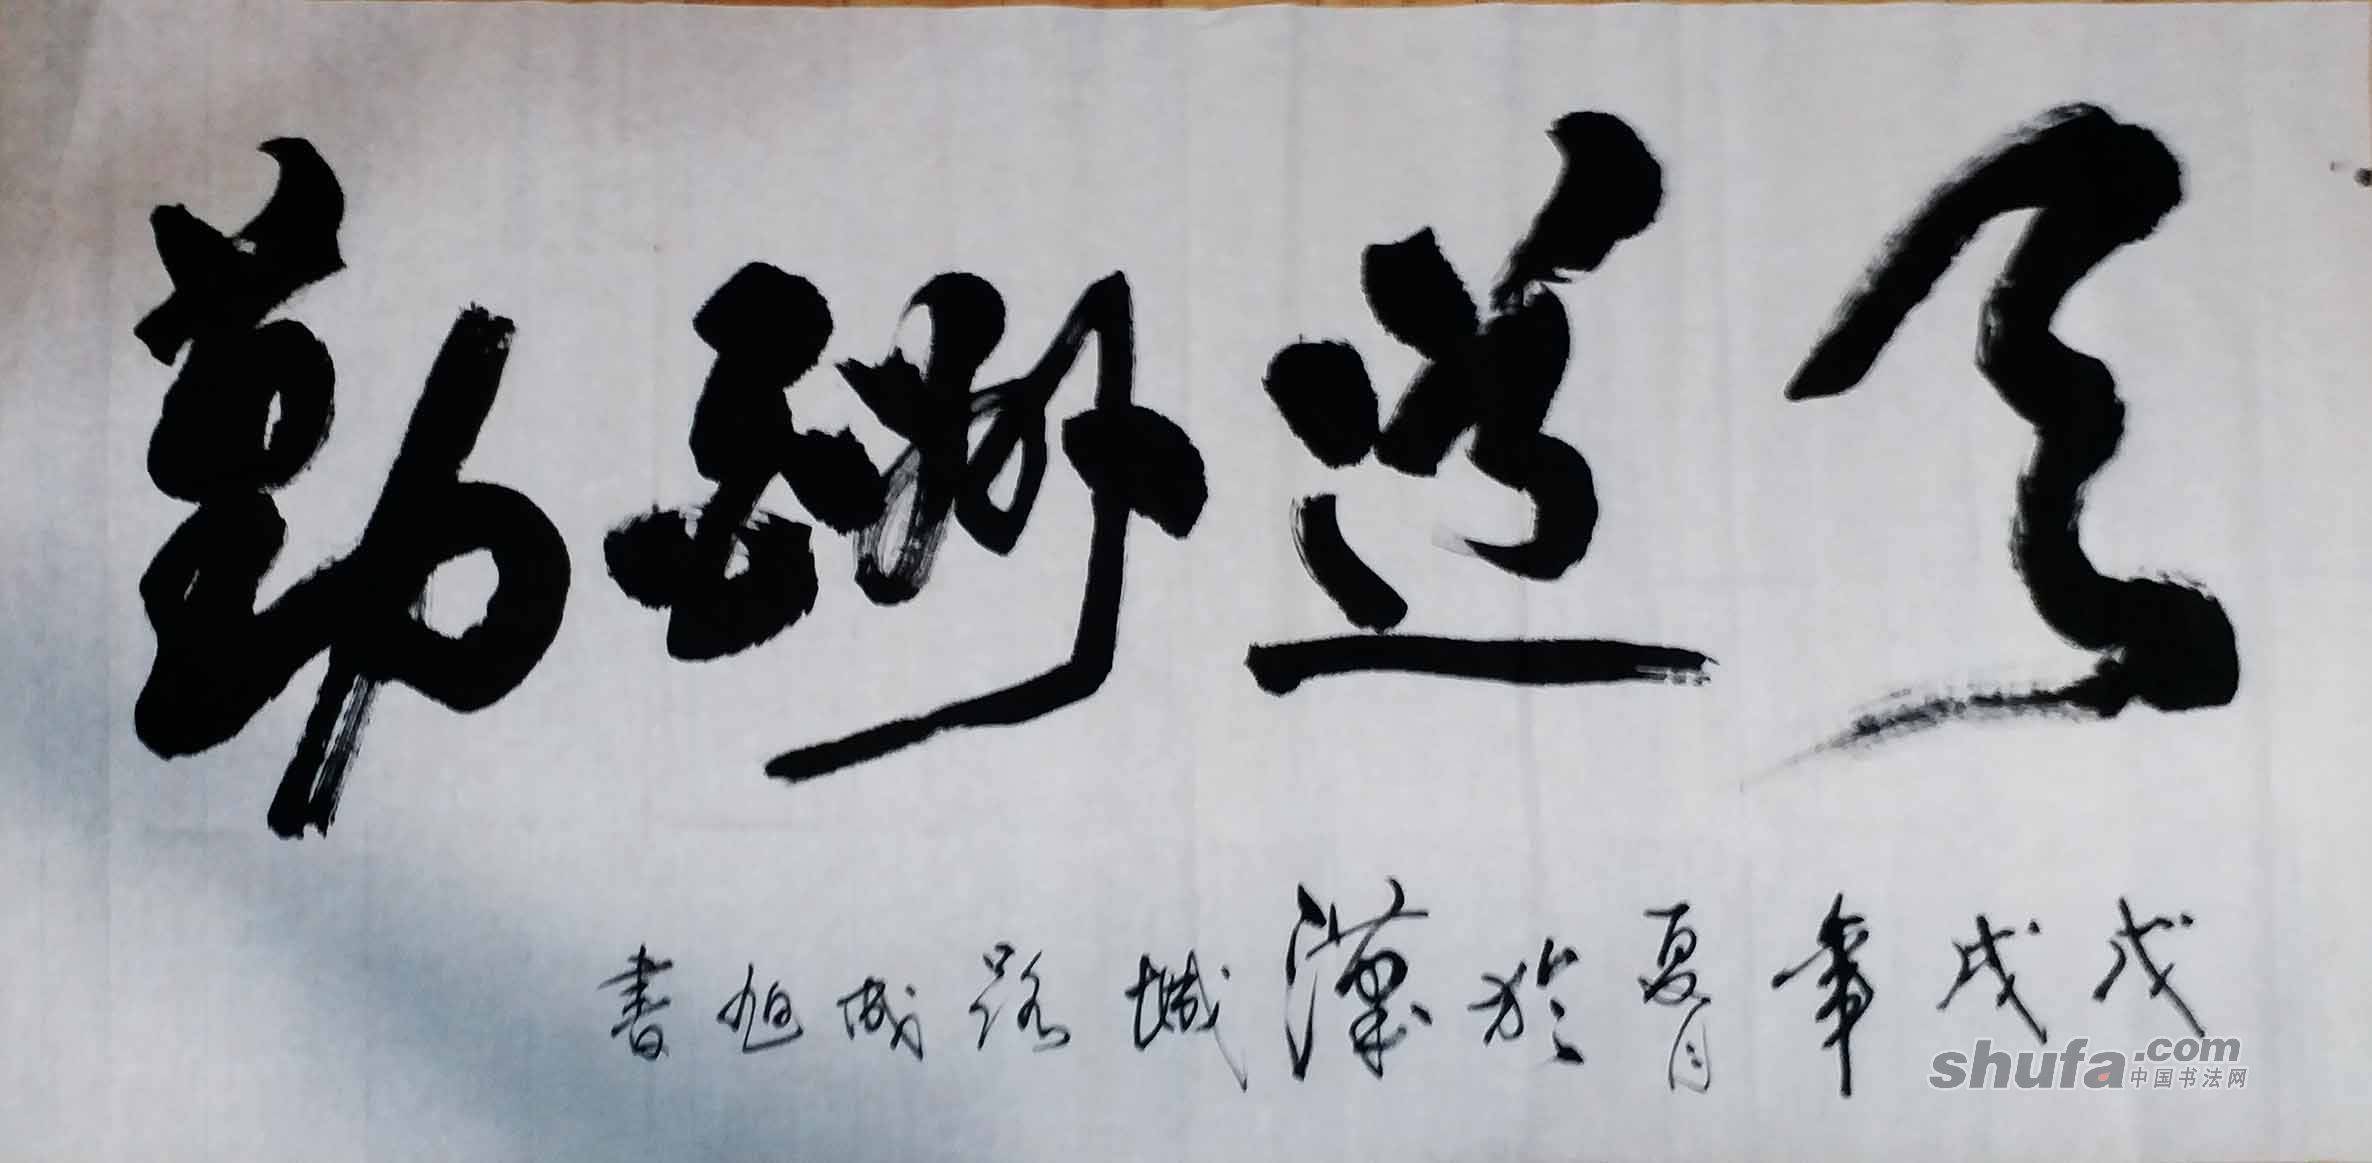 天道酬勤
戊戌年夏月於漢城路成旭書
shufa.com
中国书法网